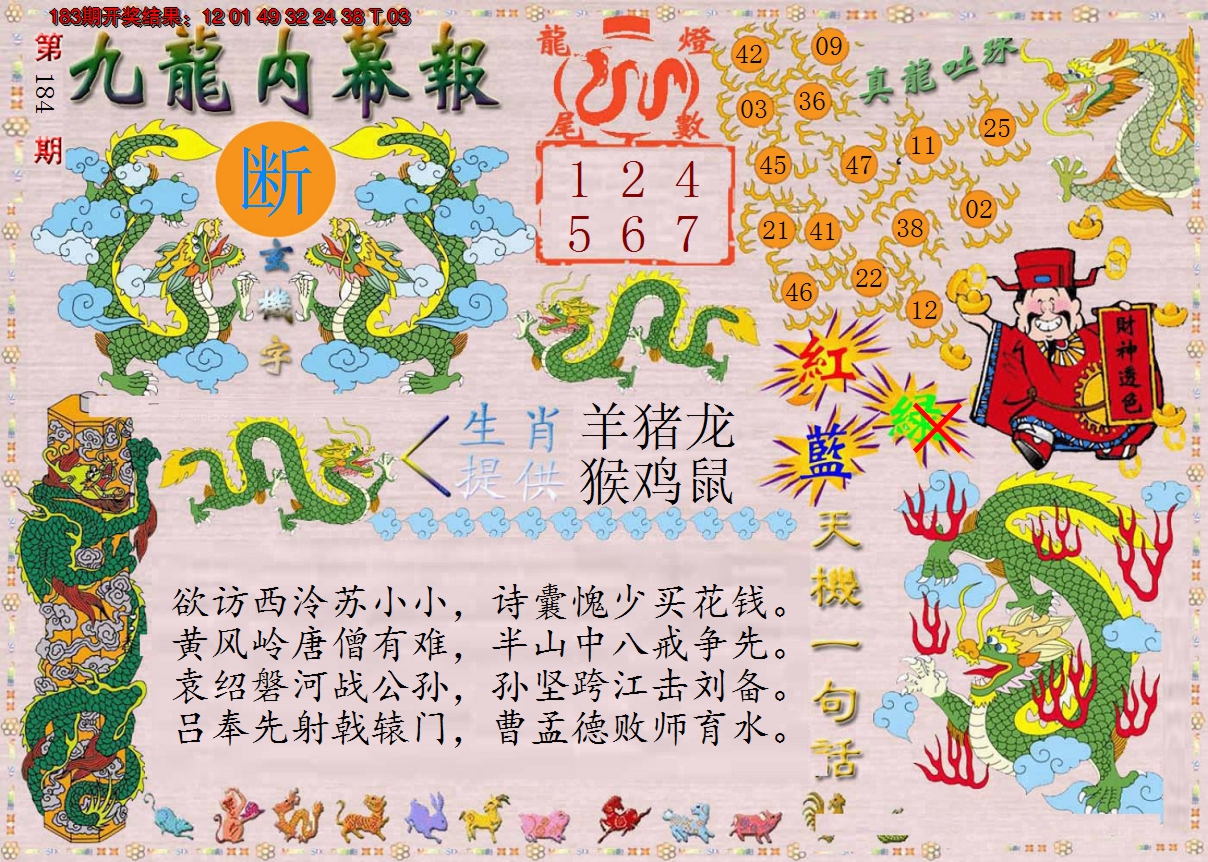 183期开奖结果：12 01 49 32 24 38 T 03
第184期
九龍内幕報
断
玄機字
龍燈尾數
1 2 4
5 6 7
真龍吐珠
42 09
03 36
45 47 11 25
21 41 38 02
46 22 12
紅
綠
藍
財神透色
生肖 羊猪龙
提供 猴鸡鼠
天機一句话
欲访西泠苏小小，诗囊愧少买花钱。
黄风岭唐僧有难，半山中八戒争先。
袁绍磐河战公孙，孙坚跨江击刘备。
吕奉先射戟辕门，曹孟德败师育水。